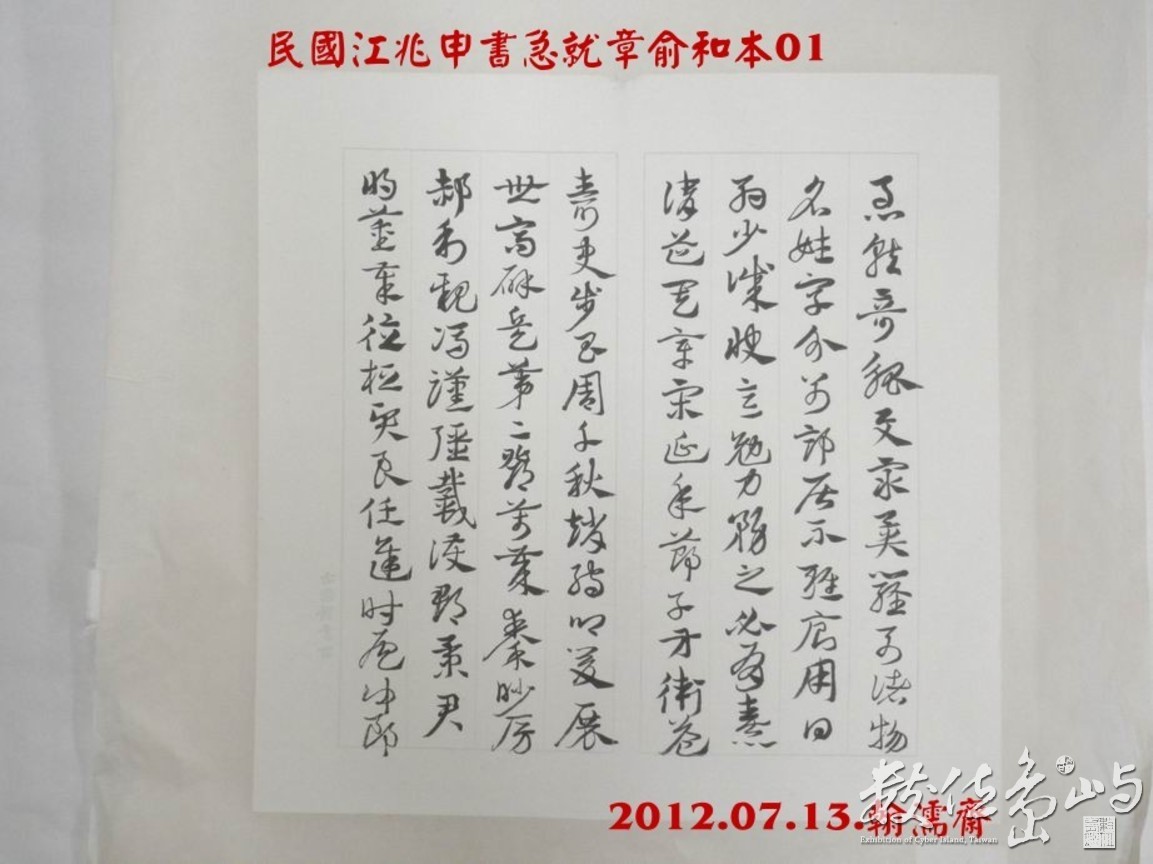 民國江兆申書急就章俞和本01
急就奇觚與眾異羅列諸物
名姓字分別部居不雜廁用日
約少誠快意勉力務之必有憙
請道其章宋延年鄭子方衛益
壽史步昌周千秋趙孺卿爰展
世高辟兵第二鄧萬歲秦眇房
郝利親馮漢彊戴護郡景君
明董奉德桓賢良任逢時侯仲郎
2012.07.13.翰濡齋
數位島嶼
Exhibition of Cyber Island, Taiwan